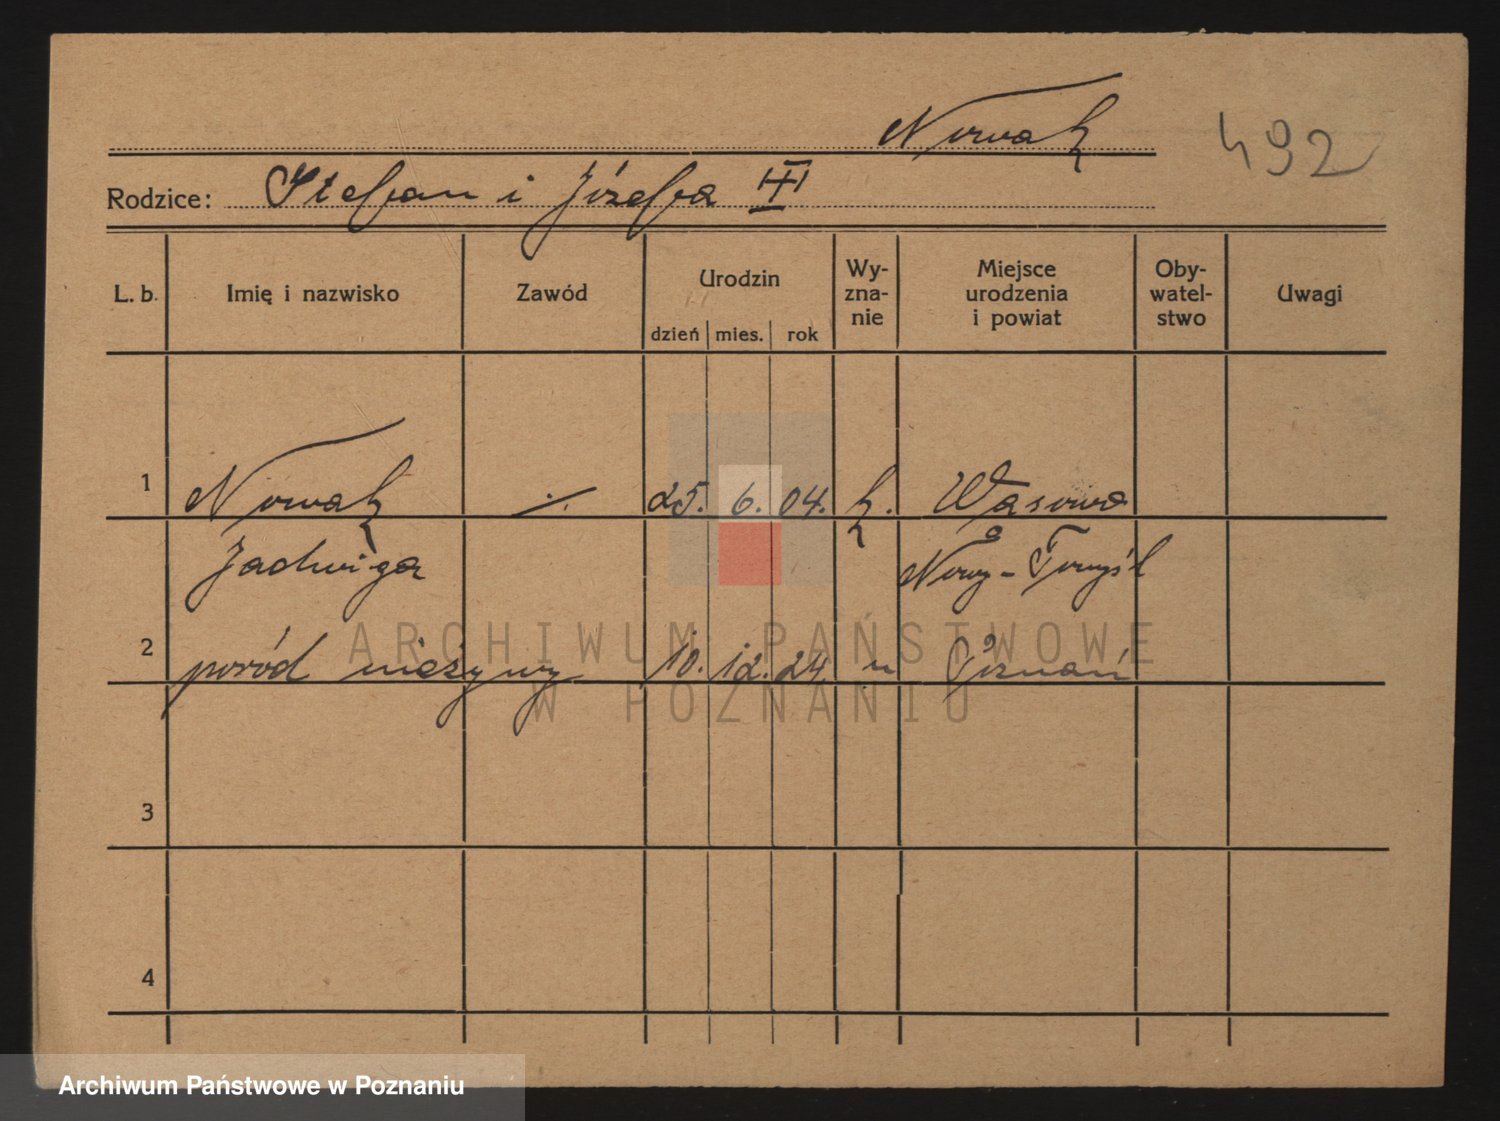 Nowak
492
Rodzice: Stefan i Józefa III
L. b. Imię i nazwisko Zawód Urodzin Wy- Miejsce Oby- Uwagi
zna- urodzenia watel-
nie i powiat stwo
dzień mies. rok
1 Nowak ./. 25. 6. 04. k. Wąsowo
Jadwiga Nowy-Tomyśl
2 poród nieżywy 10. 12. 24. n Poznań
ARCHIWUM PAŃSTWOWE
W POZNANIU
3
4
Archiwum Państwowe w Poznaniu